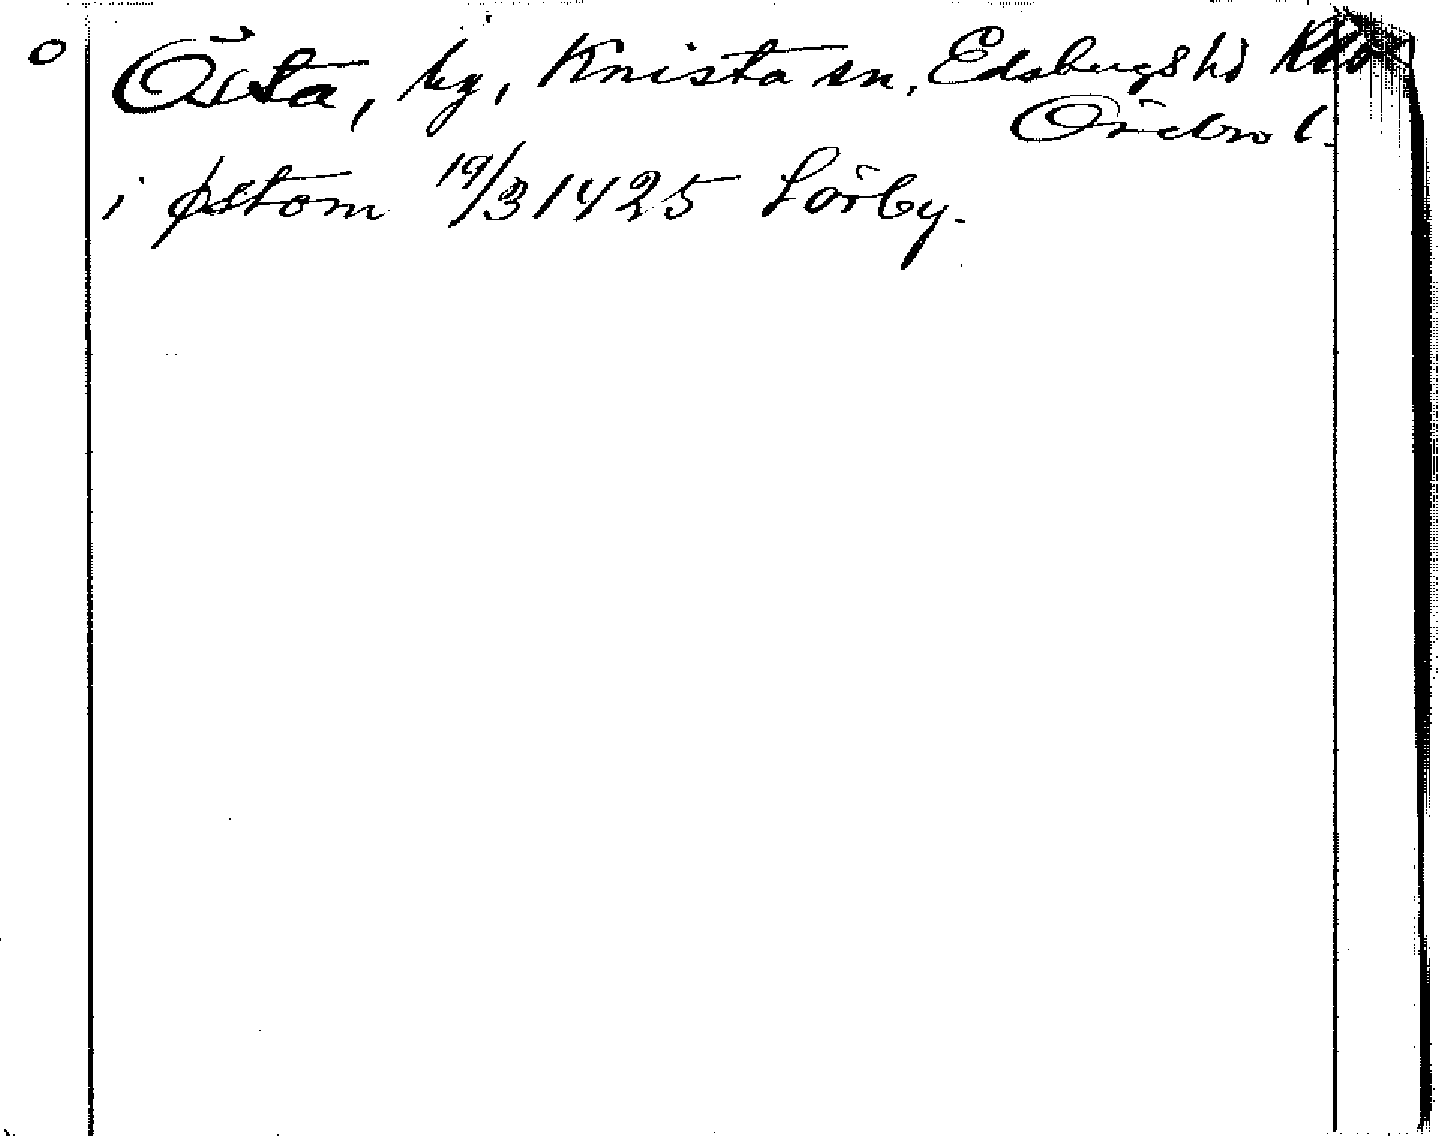 o Östa, by, Knista sn, Edsbergs hd
Örebro l.
i østom 19/3 1425 Sörby.